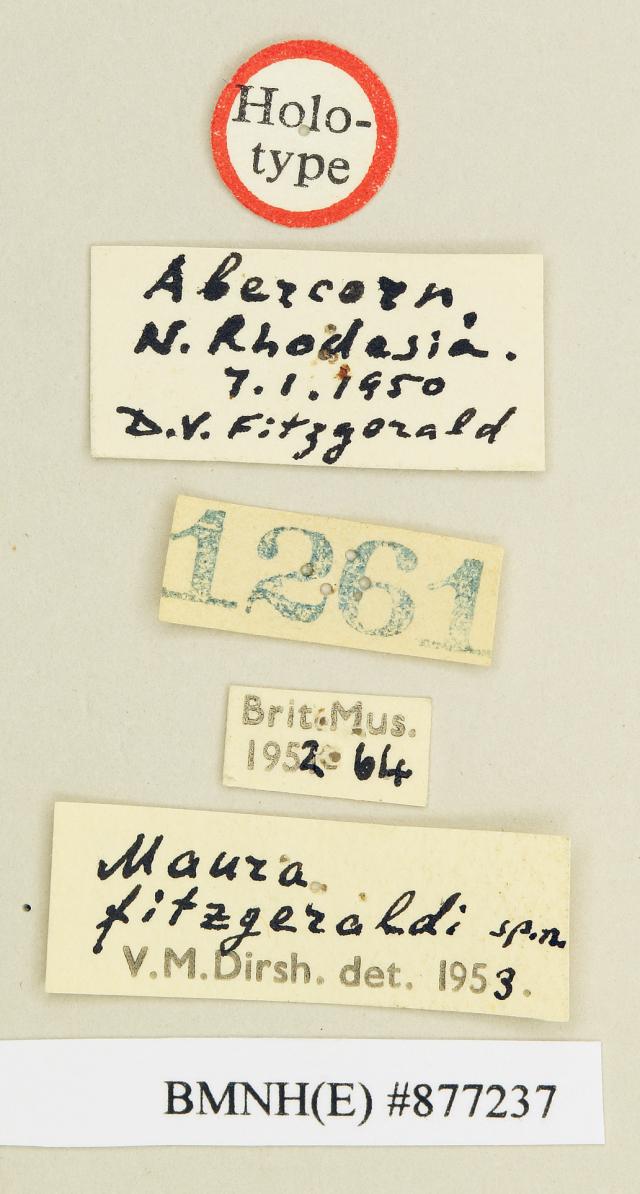 Holo-
type
Abercorn,
N. Rhodesia.
7.1.1950
D.V. Fitzgerald
1261
Brit. Mus.
1952 64
Maura
fitzgeraldi sp.n.
V.M.Dirsh. det. 1953.
BMNH(E) #877237